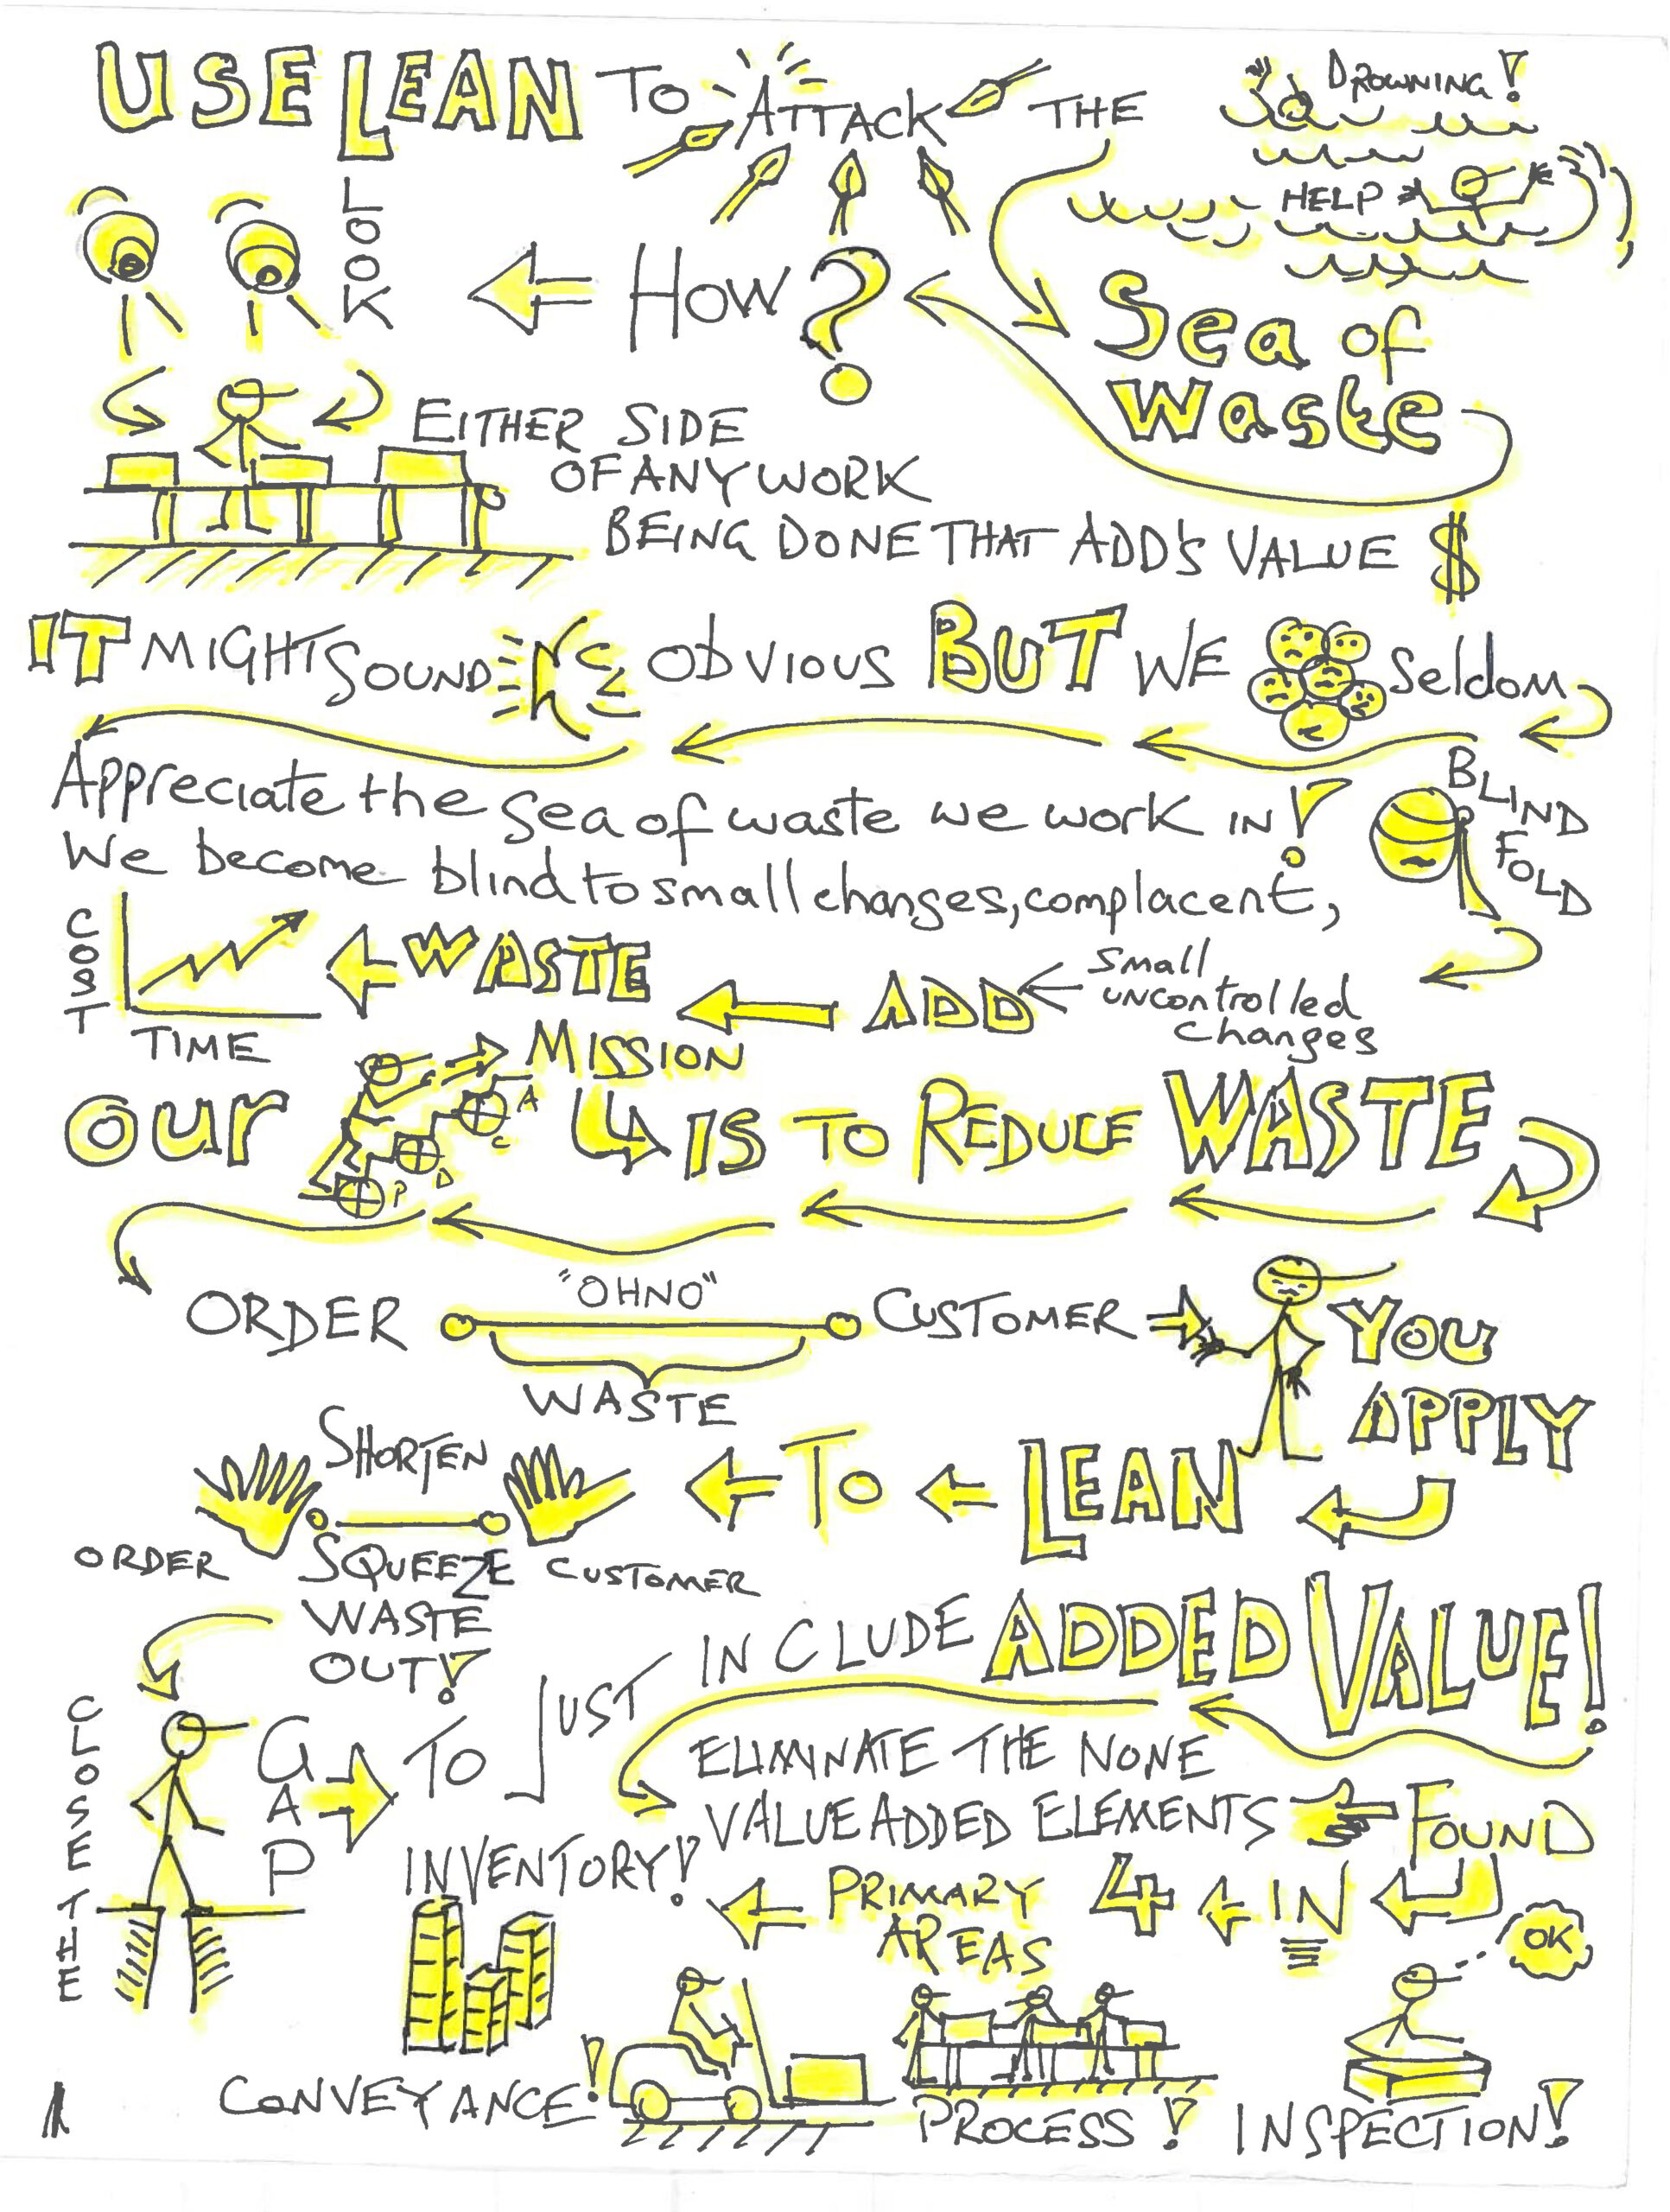 USE LEAN TO ATTACK THE
DROWNING!
HELP
Sea of
Waste
HOW?
LOOK
EITHER SIDE
OF ANY WORK
BEING DONE THAT ADD'S VALUE $
IT MIGHT SOUND OBVIOUS BUT WE Seldom
Appreciate the Sea of waste we work IN!
BLIND
FOLD
We become blind to small changes, complacent,
small
uncontrolled
changes
ADD
WASTE
COST
TIME
OUR MISSION IS TO REDUCE WASTE
P D C A
ORDER "OHNO" CUSTOMER
WASTE
YOU
APPLY
LEAN
TO
SHORTEN
ORDER SQUEEZE CUSTOMER
WASTE
OUT!
CLOSE THE
GAP
TO JUST INCLUDE ADDED VALUE!
ELIMINATE THE NONE
VALUE ADDED ELEMENTS FOUND
IN 4 PRIMARY
AREAS
INVENTORY!
CONVEYANCE!
PROCESS!
OK
INSPECTION!